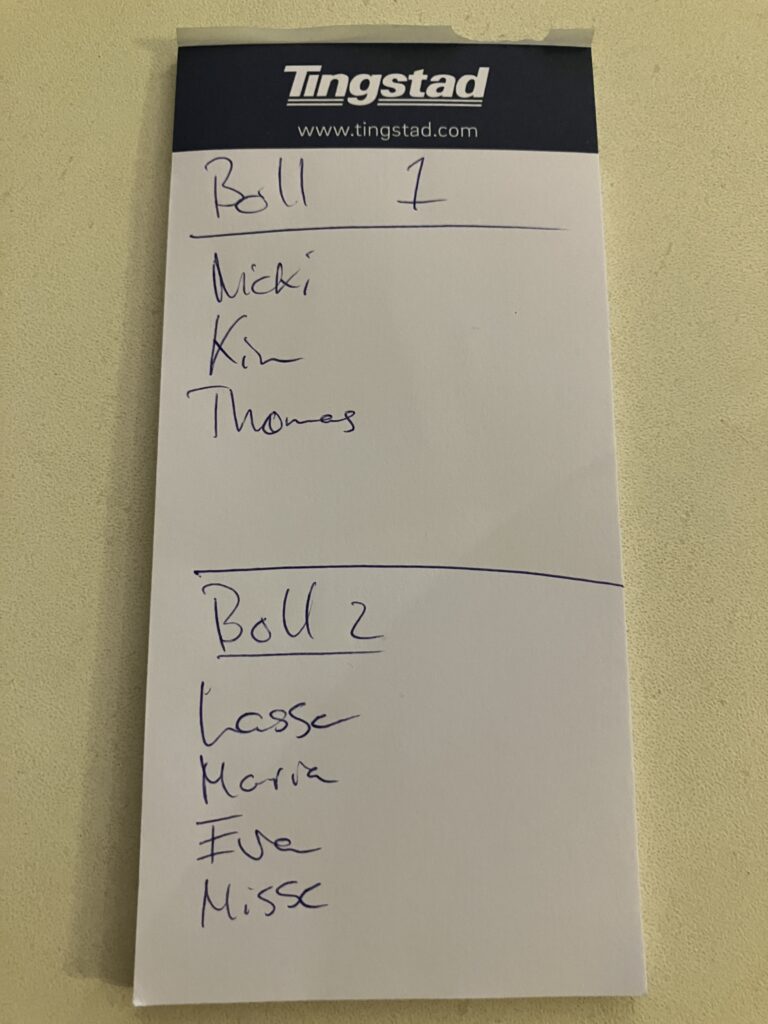 Tingstad
www.tingstad.com
Boll 1
Nicki
Kim
Thomas
Boll 2
Lasse
Maria
Eva
Misse